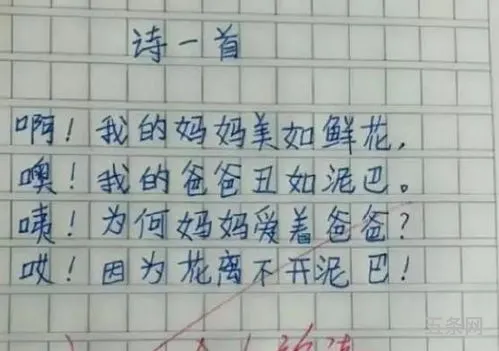 诗一首
啊！我的妈妈美如鲜花，
噢！我的爸爸丑如泥巴。
咦！为何妈妈爱着爸爸？
哎！因为花离不开泥巴！
五条网